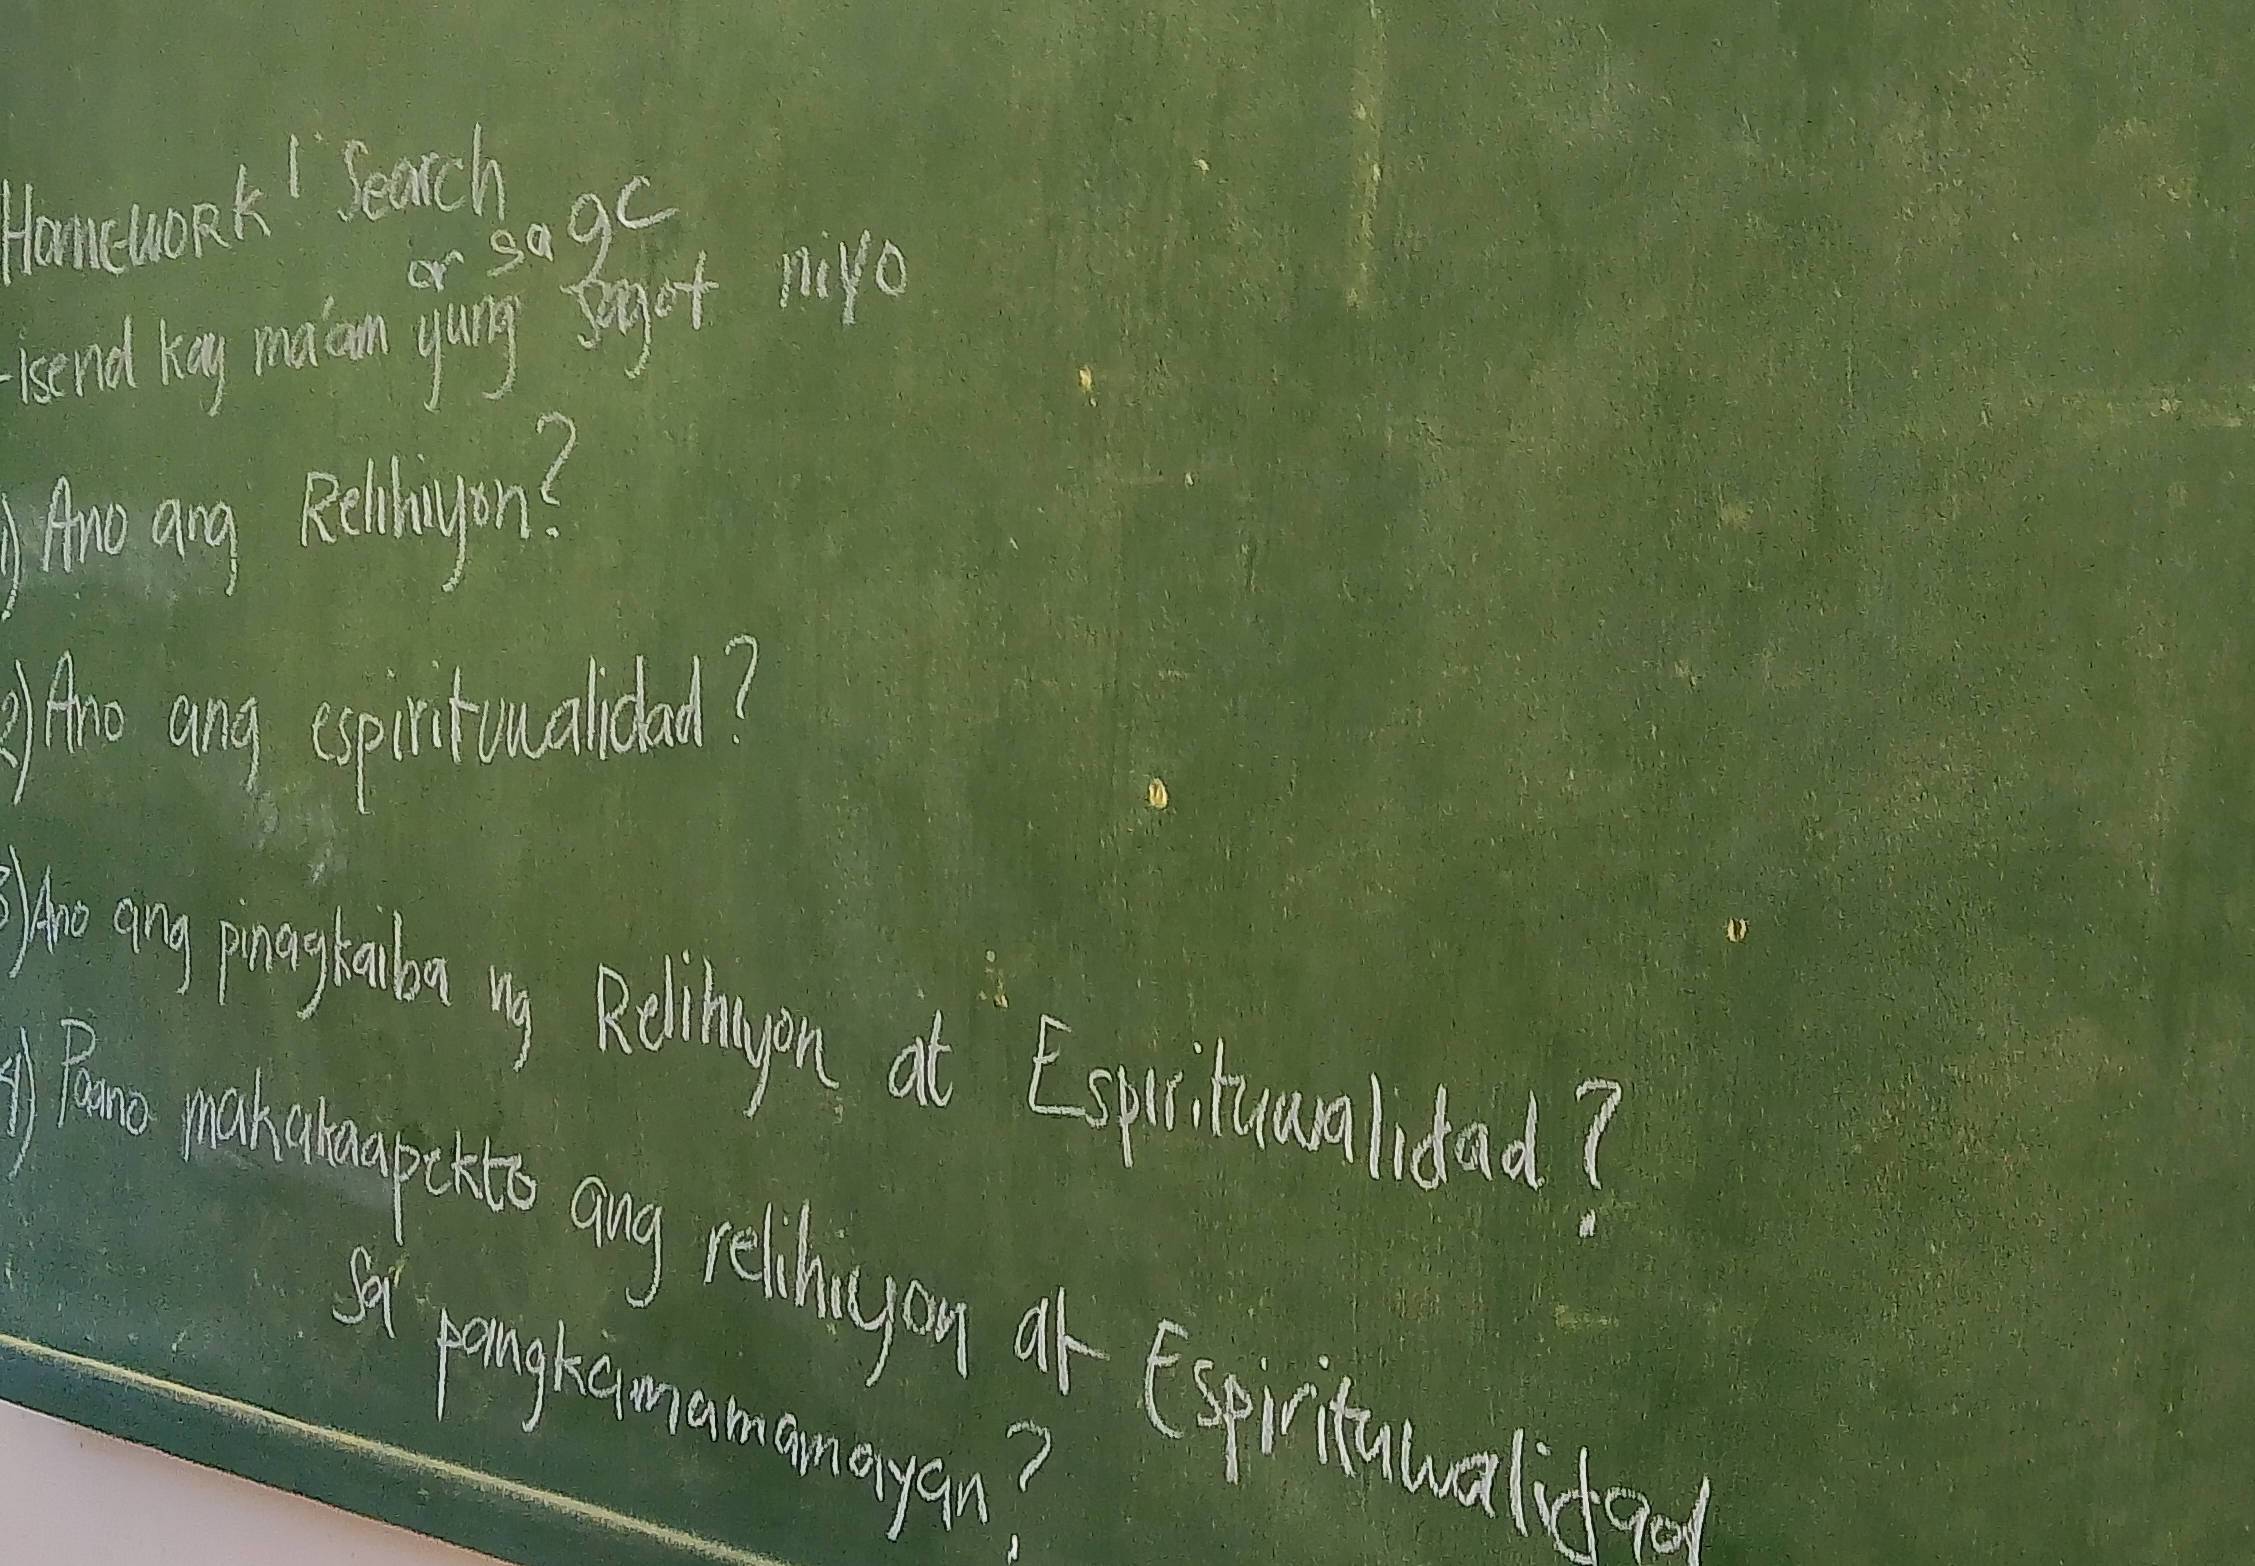 Homework! Search
or sa gc
-isend kay ma'am yung sagot niyo
1) Ano ang Relihiyon?
2) Ano ang espirituwalidad?
3) Ano ang pinagkaiba ng Relihiyon at Espirituwalidad?
4) Paano makakaapekto ang relihiyon at Espirituwalidad
sa pangkamamamayan?